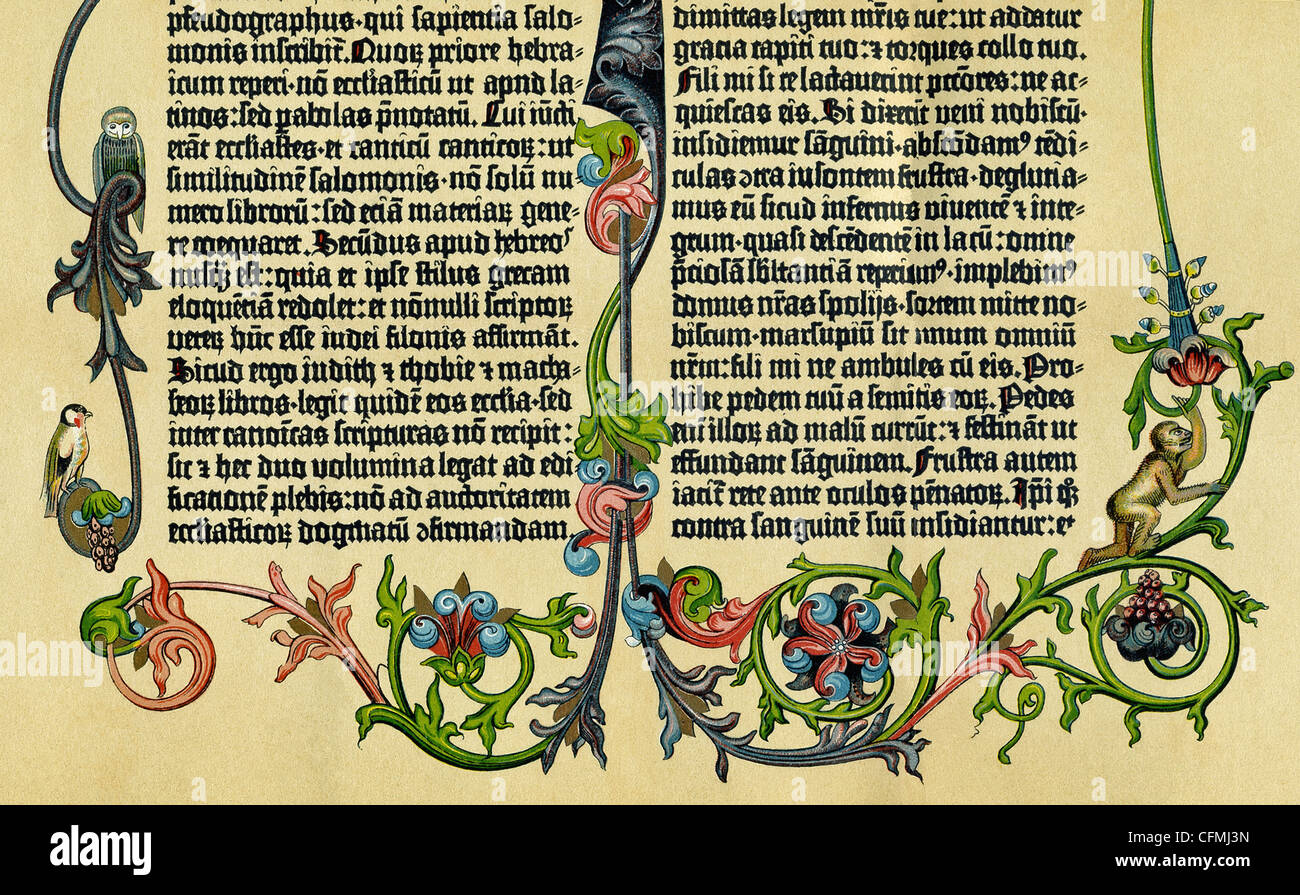 pseudographus·qui sapientia salo-
monis inscribit̄. Quoꝝ priore hebra-
icum reperi·nō eccl̄iasticū ut apud la-
tinos: sed ꝑabolas p̄notatū. Cui iūcti
erāt eccl̄iastes·et canticū canticoꝝ: ut
similitudinē salomonis·nō solū nu-
mero librorū: sed eciā materiaꝝ gene-
re coequaret. Secūdus apud hebreos
nusꝙ est: quia et ipse stilus grecam
eloquētiā redolet: et nōnulli scriptoꝝ
veteꝝ hūc esse iudei filonis affirmāt.
Sicud ergo iudith ⁊ thobie ⁊ macha-
beoꝝ libros·legit quidē eos eccl̄ia·sed
inter canonīcas scripturas nō recipit:
sic ⁊ hec duo volumina legat ad edi-
ficationē plebis: nō ad auctoritatem
eccl̄iasticoꝝ dogmatū ꝯfirmandam
dimittas legem mr̄is tue: ut addatur
gracia capiti tuo: ⁊ torques collo tuo.
Fili mi si te lactaverint pctōres: ne ac-
quiescas eis. Si dixerit veni nobiscū·
insidiemur sāguini·abscōdamꝰ tēdi-
culas ꝯtra insontem frustra·degluria-
mus eū sicud infernus viventē ⁊ inte-
grum·quasi descēdentē in lacū: omnē
p̄ciosā sb̄stantiā reperiemꝰ·implebimꝰ
domus nr̄as spolijs·sortem mitte no-
biscum·marsupiū sit unum omniū
nr̄m: fili mi ne ambules cū eis. Pro-
hibe pedem tuū a semitis eoꝝ. Pedes
eni̅ illoꝝ ad malū currūt: ⁊ festināt ut
effundant sāguinem. Frustra autem
iacit̄ rete ante oculos pēnatoꝝ. Ip̄i ꝙꝫ
contra sanguinē suū insidiantur: et
alamy
Image ID: CFMJ3N
www.alamy.com